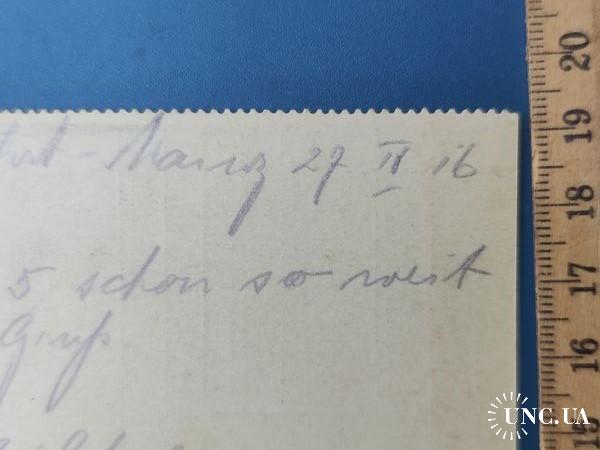 - Mainz 27 II 16
5 schon so weit
Gruß
20
19
18
17
16
15
UNC.UA